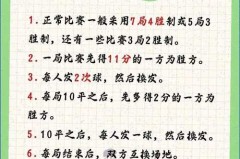 1. 正常比赛一般采用7局4胜制或5局3
胜制,还有一些比赛3局2胜制。
2. 一局比赛先得11分的一方为胜方。
3. 每人发2次球,然后换发。
4. 每局10平之后,先多得2分的一方为
胜方。
5. 10平之后,每人发一球,换发。
6. 每局结束后,双方互换场地。